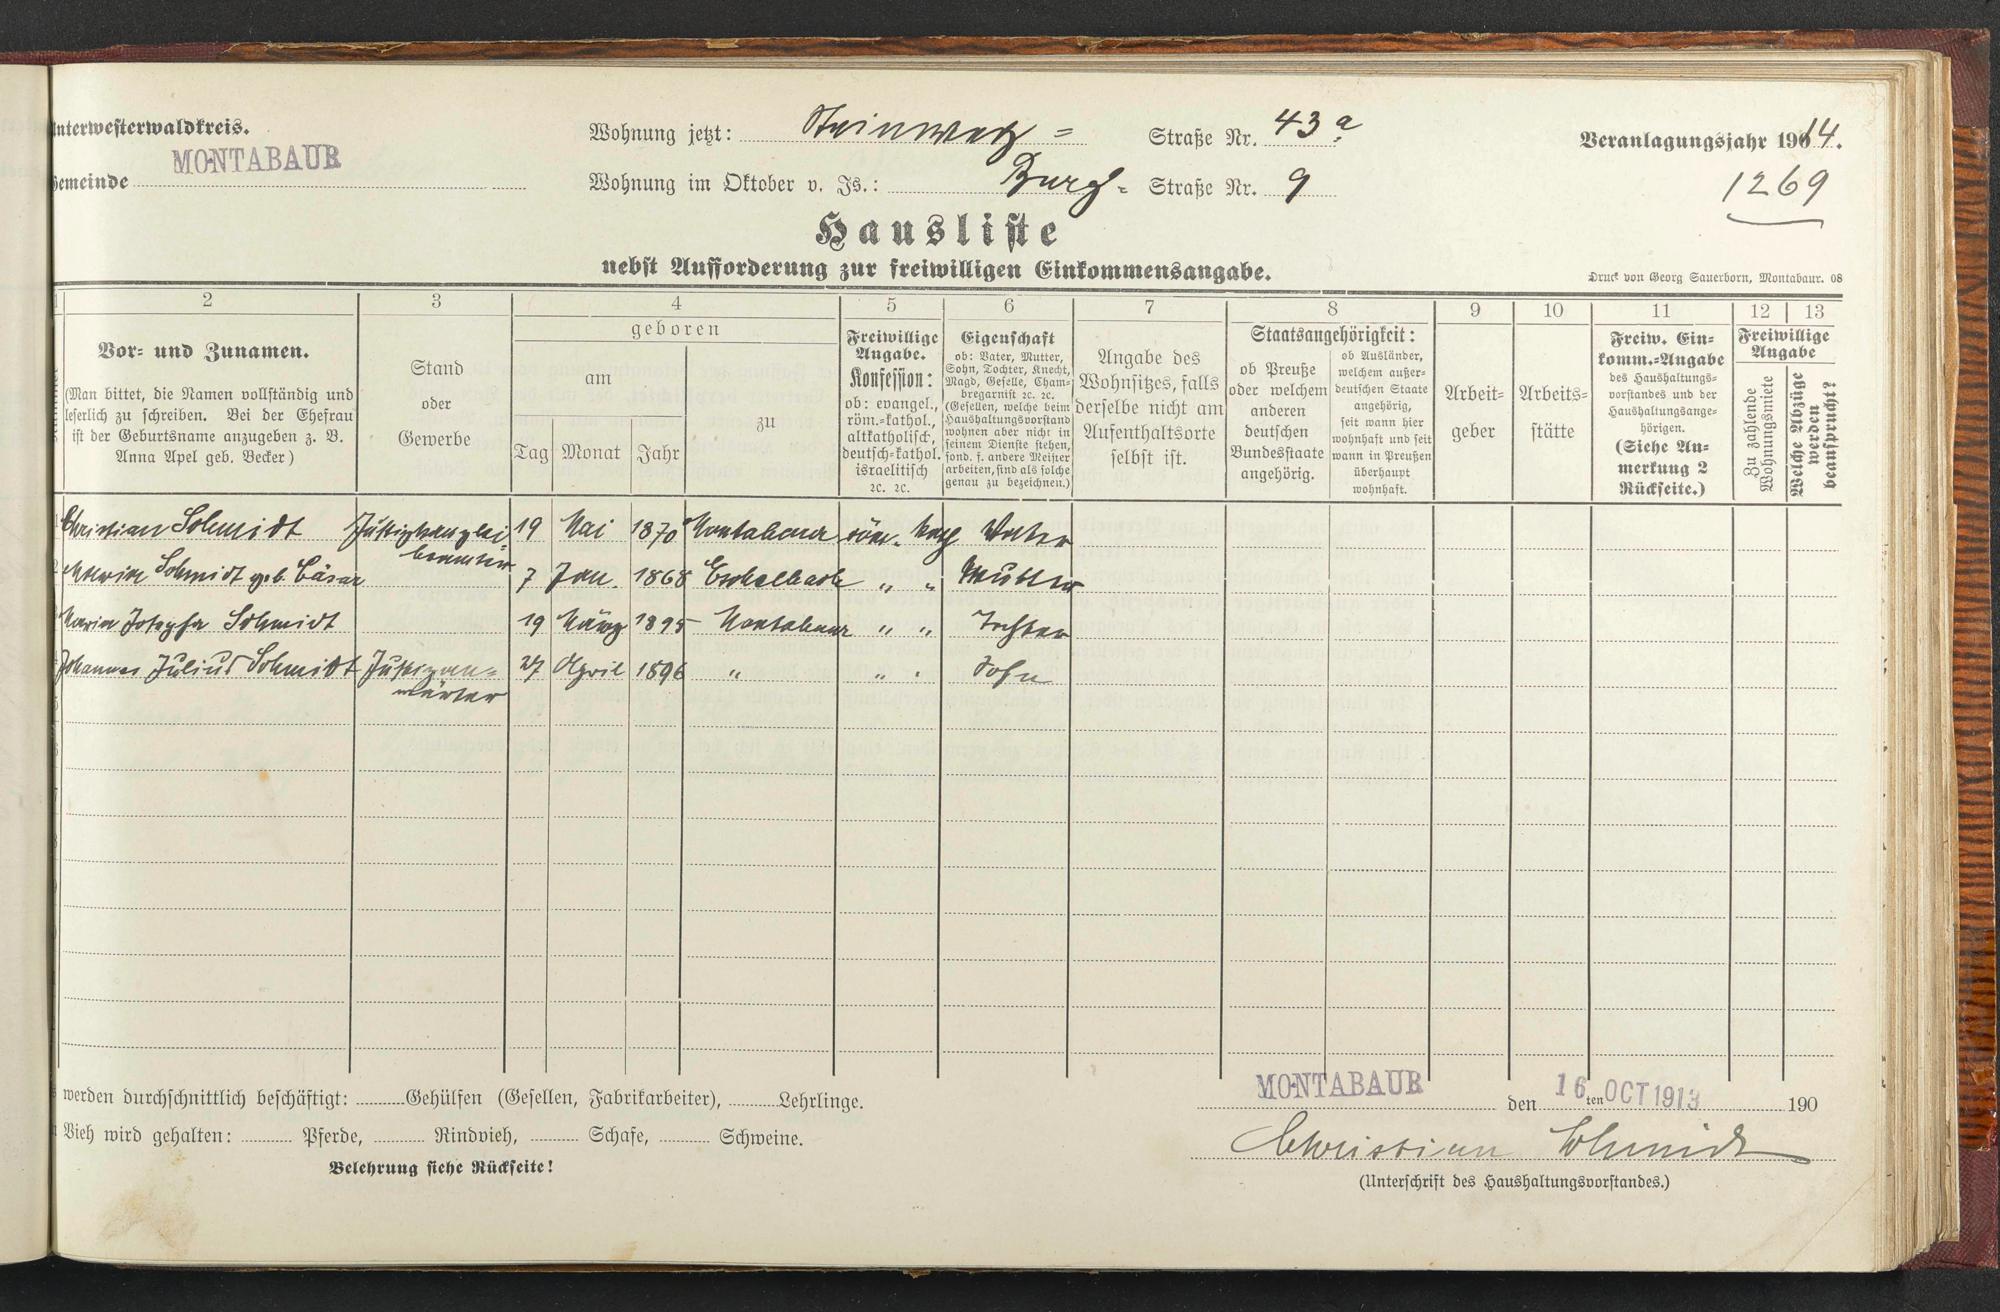 Unterwesterwaldkreis.
Gemeinde MONTABAUR
Wohnung jetzt: Steinweg= Straße Nr. 43a
Wohnung im Oktober v. Js.: Burg= Straße Nr. 9
Veranlagungsjahr 1914.
1269
Hausliste
nebst Aufforderung zur freiwilligen Einkommensangabe.
Druck von Georg Sauerborn, Montabaur. 08
2 3 4 5 6 7 8 9 10 11 12 13
Vor= und Zunamen.
(Man bittet, die Namen vollständig und
leserlich zu schreiben. Bei der Ehefrau
ist der Geburtsname anzugeben z. B.
Anna Apel geb. Becker)
Stand
oder
Gewerbe
geboren
am
Tag Monat Jahr
zu
Freiwillige
Angabe.
Konfession:
ob: evangel.,
röm.=kathol.,
altkatholisch,
deutsch=kathol.
israelitisch
ꝛc. ꝛc.
Eigenschaft
ob: Vater, Mutter,
Sohn, Tochter, Knecht,
Magd, Geselle, Cham=
bregarnist ꝛc. ꝛc.
(Gesellen, welche beim
Haushaltungsvorstand
wohnen aber nicht in
seinem Dienste stehen,
sond. f. andere Meister
arbeiten, sind als solche
genau zu bezeichnen.)
Angabe des
Wohnsitzes, falls
derselbe nicht am
Aufenthaltsorte
selbst ist.
Staatsangehörigkeit:
ob Preuße
oder welchem
anderen
deutschen
Bundesstaate
angehörig.
ob Ausländer,
welchem außer=
deutschen Staate
angehörig,
seit wann hier
wohnhaft und seit
wann in Preußen
überhaupt
wohnhaft.
Arbeit=
geber
Arbeits=
stätte
Freiw. Ein=
komm.=Angabe
des Haushaltungs=
vorstandes und der
Haushaltungsange=
hörigen.
(Siehe An=
merkung 2
Rückseite.)
Freiwillige
Angabe
Zu zahlende
Wohnungsmiete
Welche Abzüge
werden
beansprucht?
Christian Schmidt Justizkanzlei 19 Mai 1870 Montabaur röm. kath Vater
beamter
Maria Schmidt geb. Cäsar 7 Jan. 1868 Eschelbach " " Mutter
Maria Josepha Schmidt 19 März 1895 Montabaur " " Tochter
Johannes Julius Schmidt Justizan= 27 April 1896 " " " Sohn
wärter
werden durchschnittlich beschäftigt: Gehülfen (Gesellen, Fabrikarbeiter), Lehrlinge.
Vieh wird gehalten: Pferde, Rindvieh, Schafe, Schweine.
Belehrung siehe Rückseite!
MONTABAUR den 16ten OCT 1913 190
Christian Schmidt
(Unterschrift des Haushaltungsvorstandes.)